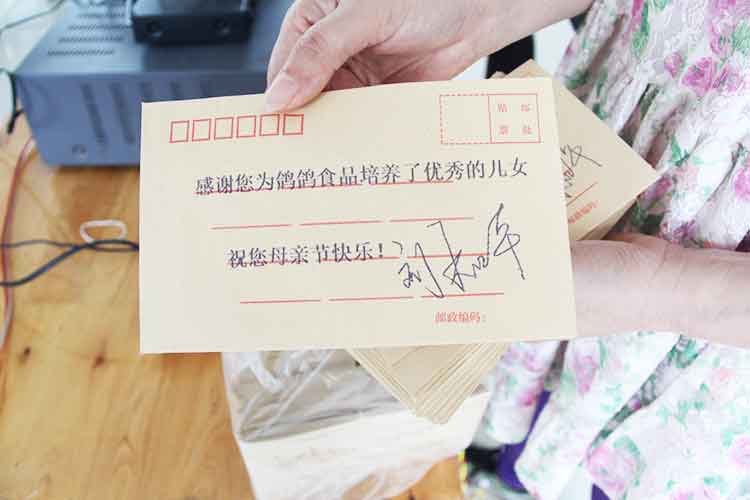 贴 邮
票 处
感谢您为鸽鸽食品培养了优秀的儿女
祝您母亲节快乐!
邮政编码:
邮政编码: